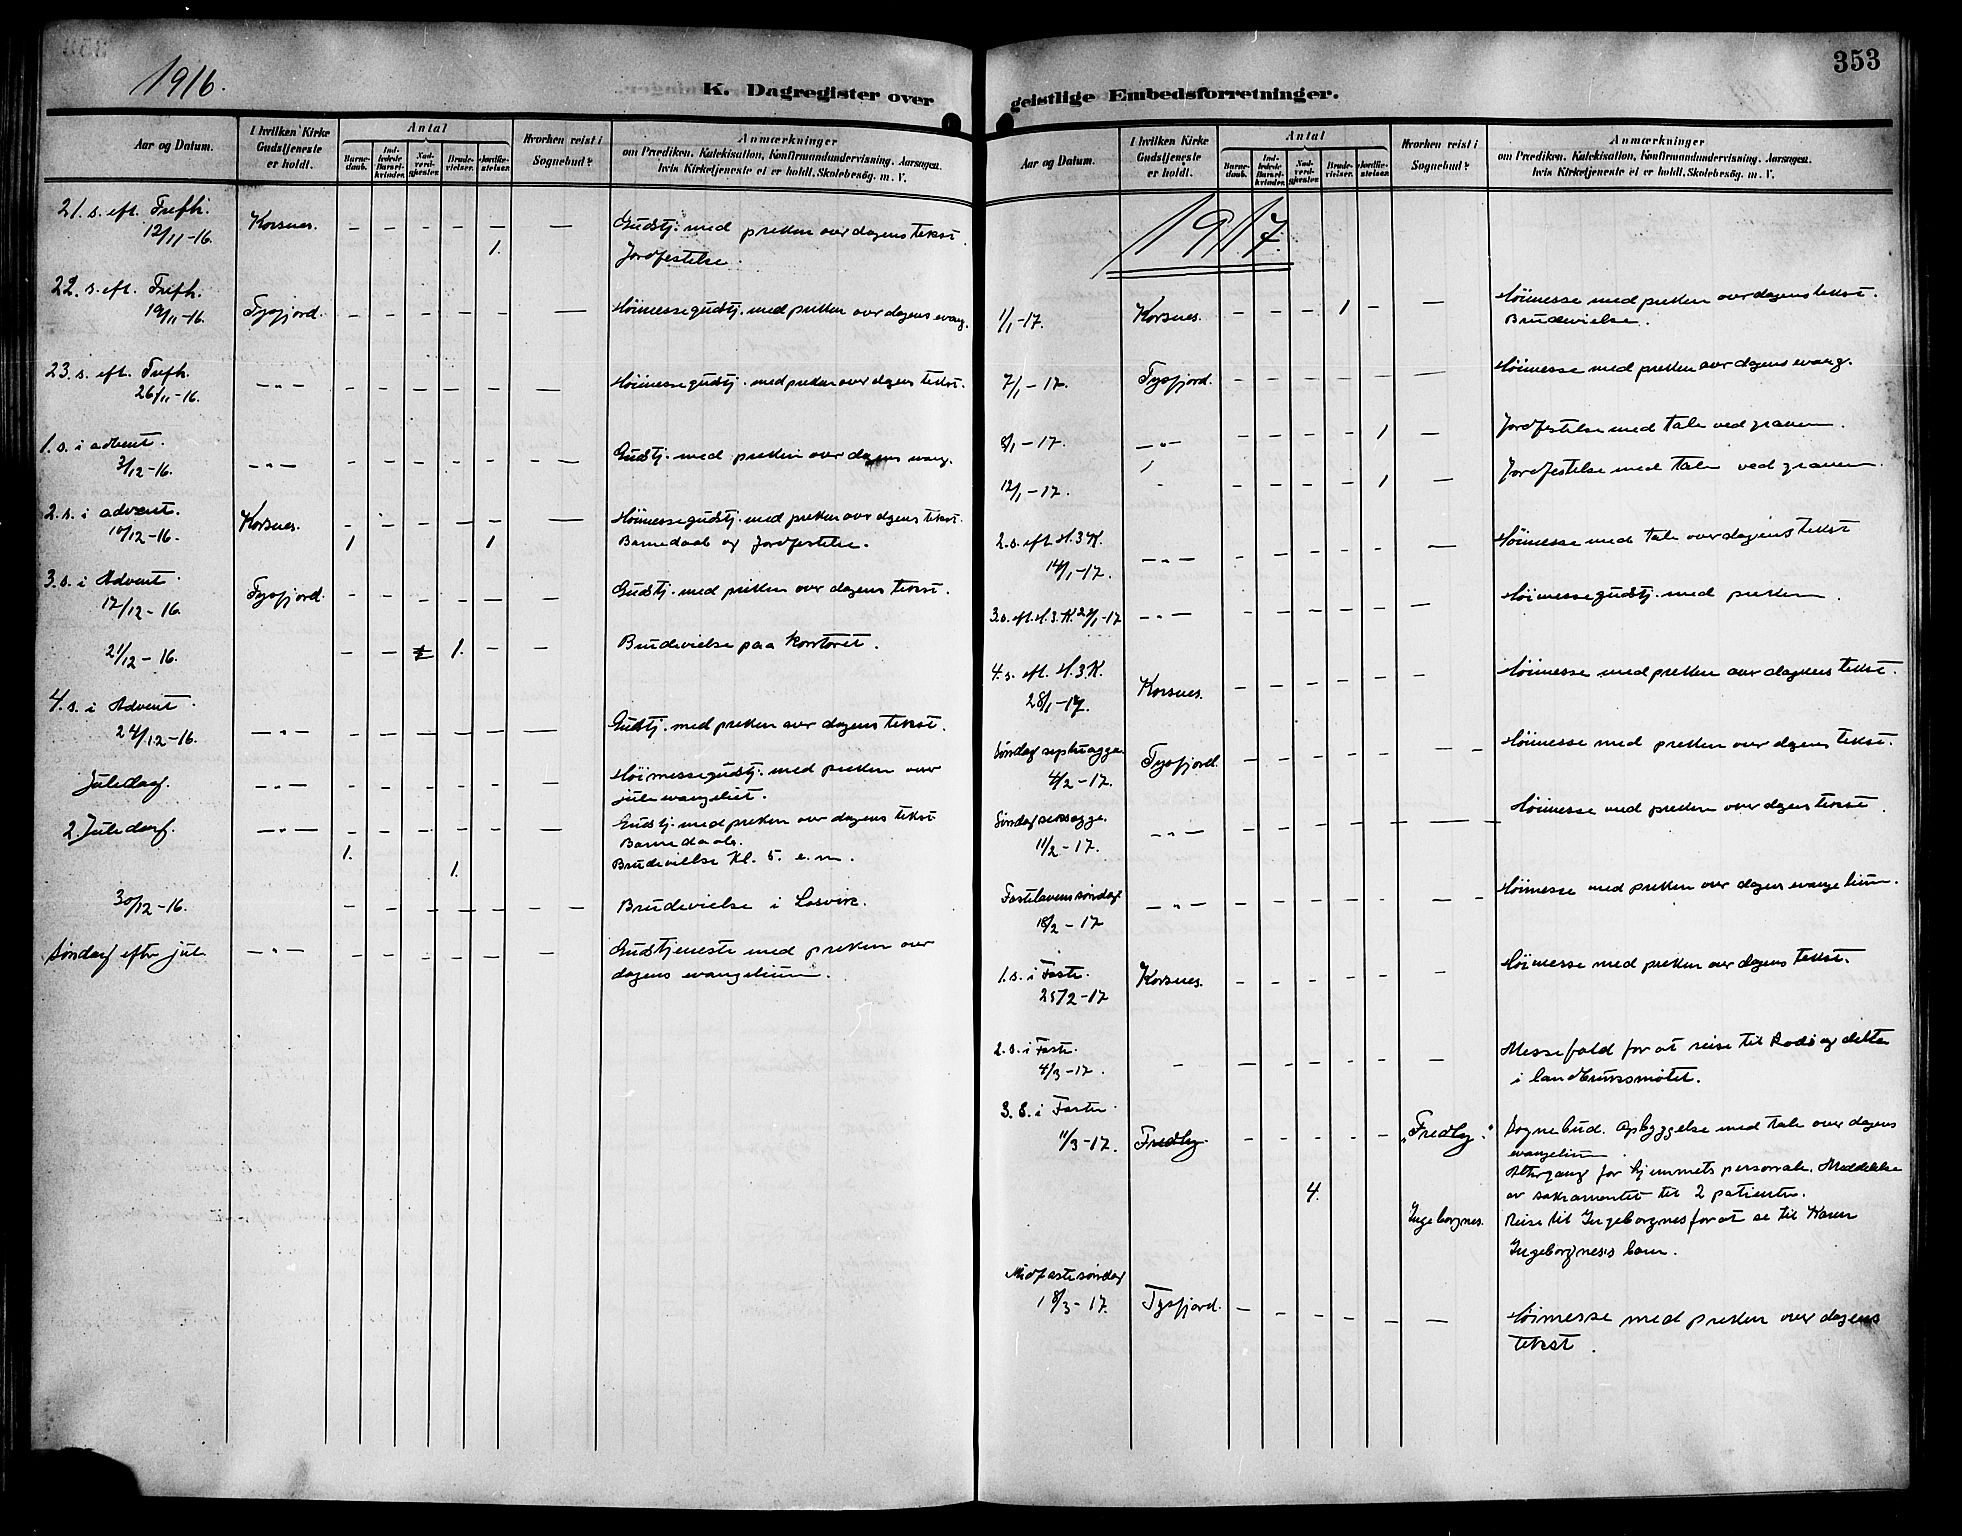 1916.
K. Dagregister over
Aar og Datum.
I hvilken Kirke Gudstjeneste er holdt.
Antal
Barnedaab.
Indledede Barselkvinder.
Nadverdgjester.
Brudevielser.
Jordfæstelser.
Hvorhen reist i Sognebud?
Anmærkninger
om Prædiken, Katekisation, Konfirmandundervisning. Aarsagen,
hvis Kirketjeneste ei er holdt, Skolebesøg. m. V.
21. s. eft. Trefh.
12/11-16. Korsnes. - - - - - — Gudstj. med preken over dagens tekst.
1. Jordfestelse.
22. s. eft. Trefh.
19/11-16. Tysfjord. - - - - - — Høimessegudstj. med preken over dagens evang.
23. s. eft. Trefh.
26/11-16. — " — - - - - - — Høimessegudstj. med preken over dagens tekst.
1. s. i advent.
3/12-16. — " — - - - - - — Gudstj. med preken over dagens evang.
2. s. i advent.
10/12-16. Korsnes. - - - - - — Høimessegudstj. med preken over dagens tekst.
1 1 Barnedaab og Jordfestelse.
3. s. i Advent.
17/12-16. Tysfjord. - - - - - — Gudstj. med preken over dagens tekst.
21/12-16. - - 1. - - Brudevielse paa Kontoret.
4. s. i Advent
24/12-16. — " — - - - - - — Gudstj. med preken over dagens tekst.
Juledag. — " — - - - - - — Høimessegudstj. med preken over
juleevangeliet.
2. Juledag. — " — - - - - - — Gudstj. med preken over dagens tekst
1. Barnedaab.
1. Brudevielse Kl. 5. e. m.
30/12-16. - - - - - - - Brudevielse i Losvik.
Søndag efter jul. — " — - - - - - — Gudstjeneste med preken over
dagens evangelium.
353
geistlige Embedsforretninger.
Aar og Datum.
I hvilken Kirke Gudstjeneste er holdt.
Antal
Barnedaab.
Indledede Barselkvinder.
Nadverdgjester.
Brudevielser.
Jordfæstelser.
Hvorhen reist i Sognebud?
Anmærkninger
om Prædiken, Katekisation, Konfirmandundervisning, Aarsagen,
hvis Kirketjeneste ei er holdt, Skolebesøg. m. V.
1917.
1/1-17. Korsnes. - - - 1 - — Høimesse med preken over dagens tekst.
Brudevielse.
7/1-17. Tysfjord. - - - - - — Høimesse med preken over dagens evang.
8/1-17. — " — - - - - 1 — Jordfestelse med tale ved graven.
12/1-17. " - - - - 1 — Jordfestelse med tale ved graven.
2. s. eft H. 3 K.
14/1-17. — " — - - - - - — Høimesse med tale over dagens tekst
3. s. eft. H. 3. K. 21/1-17 — " — - - - - - — Høimessegudstj. med preken.
4. s. eft. H. 3 K.
28/1-17. Korsnes. - - - - - - Høimesse med preken over dagens tekst.
Søndag septuagge.
4/2-17. Tysfjord. - - - - - - - Høimesse med preken over dagens tekst.
Søndag seksagge.
11/2-17. — " — - - - - - — - Høimesse med preken over dagens tekst.
Fastelavenssøndag
18/2-17 — " — - - - - - — - Høimesse med preken over dagens evangelium.
1. s. i Faste.
25/2-17 Korsnes. - - - - - - Høimesse med preken over dagens tekst.
2. s. i Faste.
4/3-17. - - - - - - - Messefald for at reise til Bodø og delta
i landbruksmøtet.
3. s. i Faste.
11/3-17. Fredly - - - - - „Fredly." Sognebud. Opbyggelse med tale over dagens
evangelium
Altergang for hjemmets personale. Meddelelse
4. av sakramentet til 2 patienter.
Ingeborgnes. Reise til Ingeborgnes for at se til Karen
Ingeborgnes's barn.
Midfastesøndag
18/3-17. Tysfjord. - - - - - — Høimesse med preken over dagens
tekst.